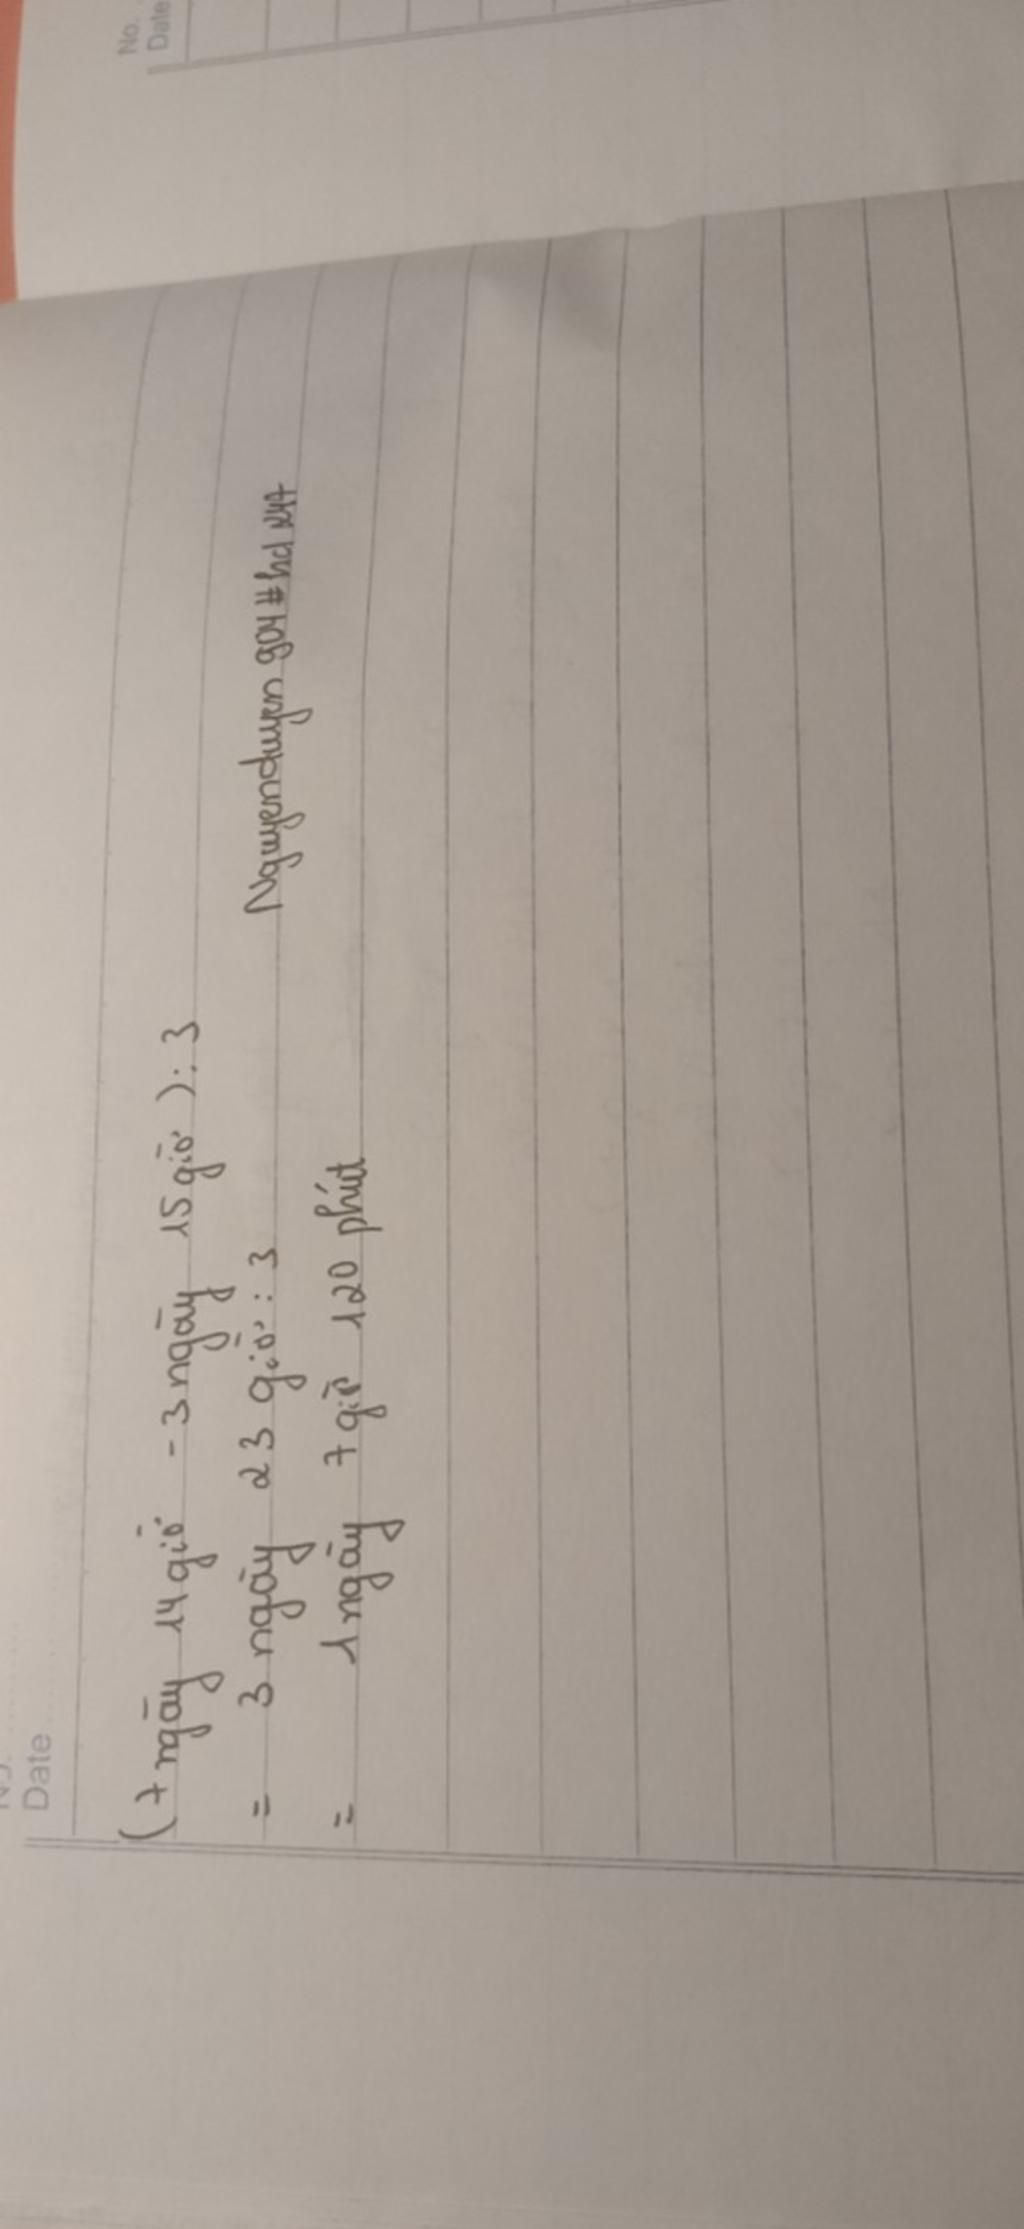 No.
Date
No.
Date
(7 ngày 14 giờ - 3 ngày 15 giờ ) : 3
= 3 ngày 23 giờ : 3
Nguyenduyen904#hd247
= 1 ngày 7 giờ 120 phút